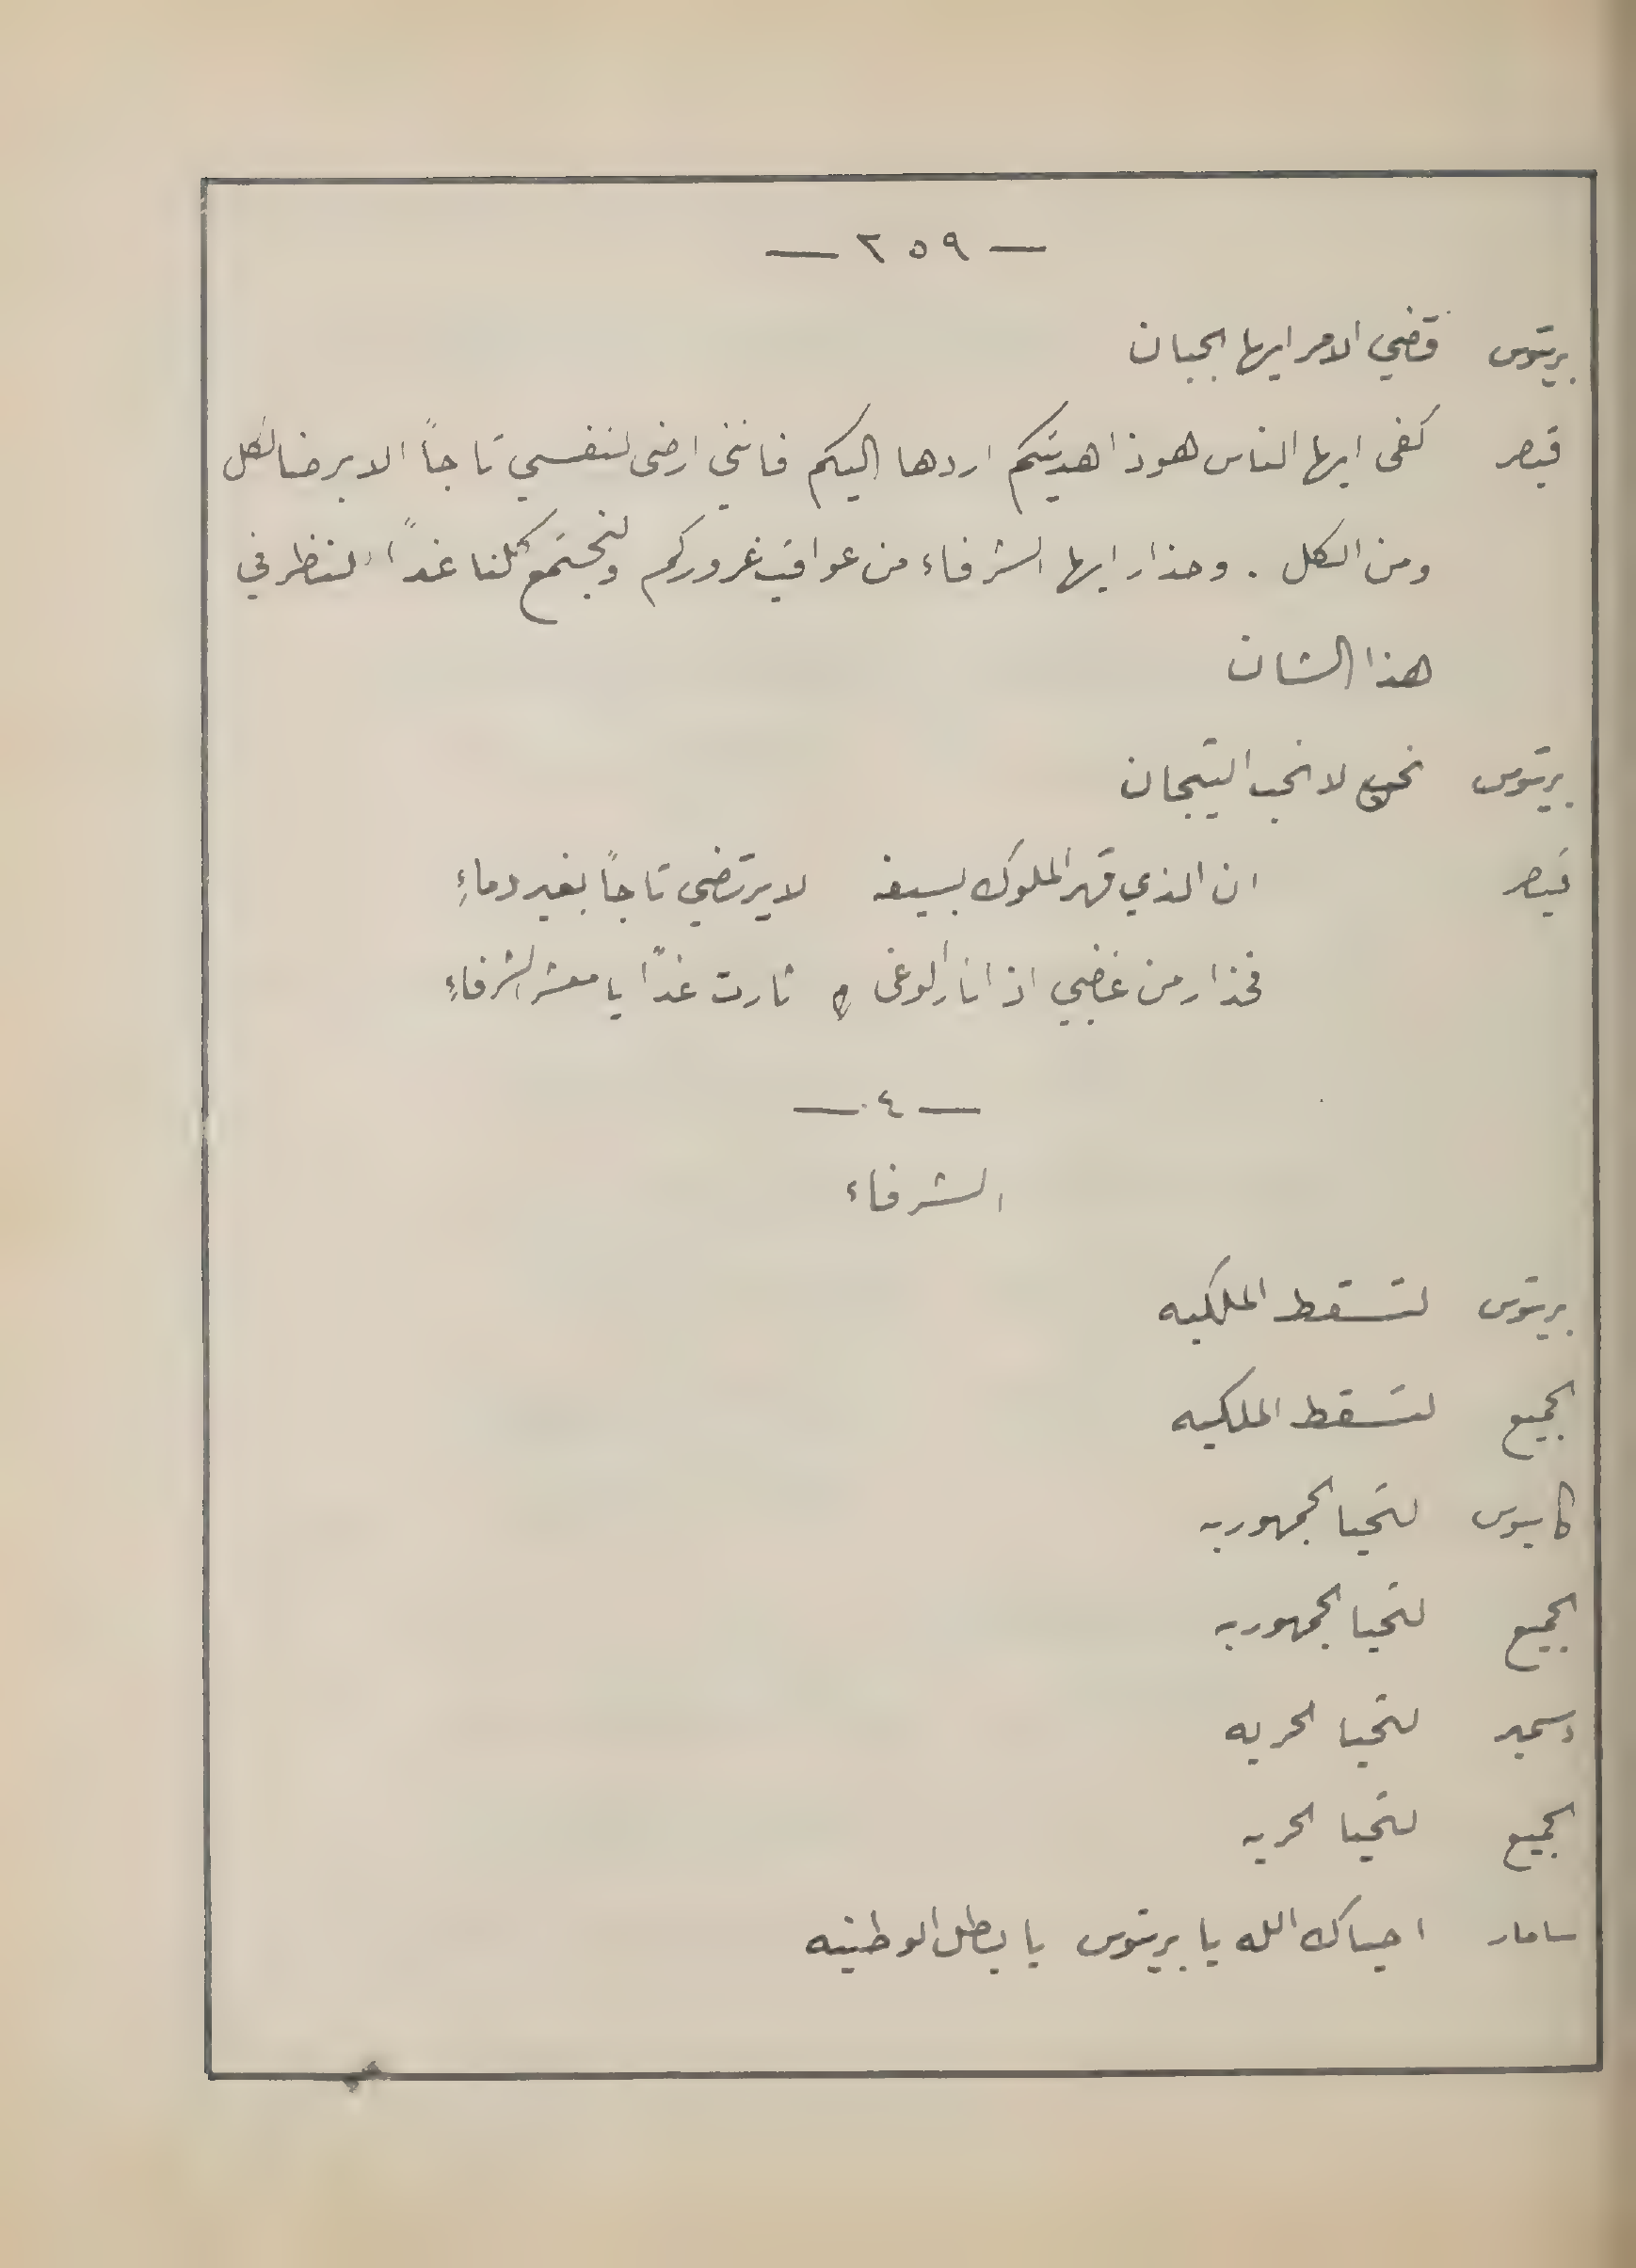 — ٢٥٩ —
بريتوس قضي الامر ايها الجبان
قيصر كفى ايها الناس هوذا هديتكم اردها اليكم فانني ارضى لنفسي تاجاً الا برضا الكل
ومن الكل . وحذار ايها الشرفاء من عواقب غروركم ولنجتمع كلنا غداً لننظر في
هذا الشان
بريتوس نحن لا نحب التيجان
قيصر ان الذي قهر الملوك بسيفه لا يرتضي تاجاً بغير دماءِ
فحذار من غضبي اذا نار الوغى ثارت غداً يا معشر الشرفاءِ
— ٤ —
الشرفاء
بريتوس لتسقط الملكيه
الجميع لتسقط الملكيه
كاسيوس لتحيا الجمهوريه
الجميع لتحيا الجمهوريه
دسمير لتحيا الحريه
الجميع لتحيا الحريه
سامار احياك الله يا بريتوس يا بطل الوطنيه